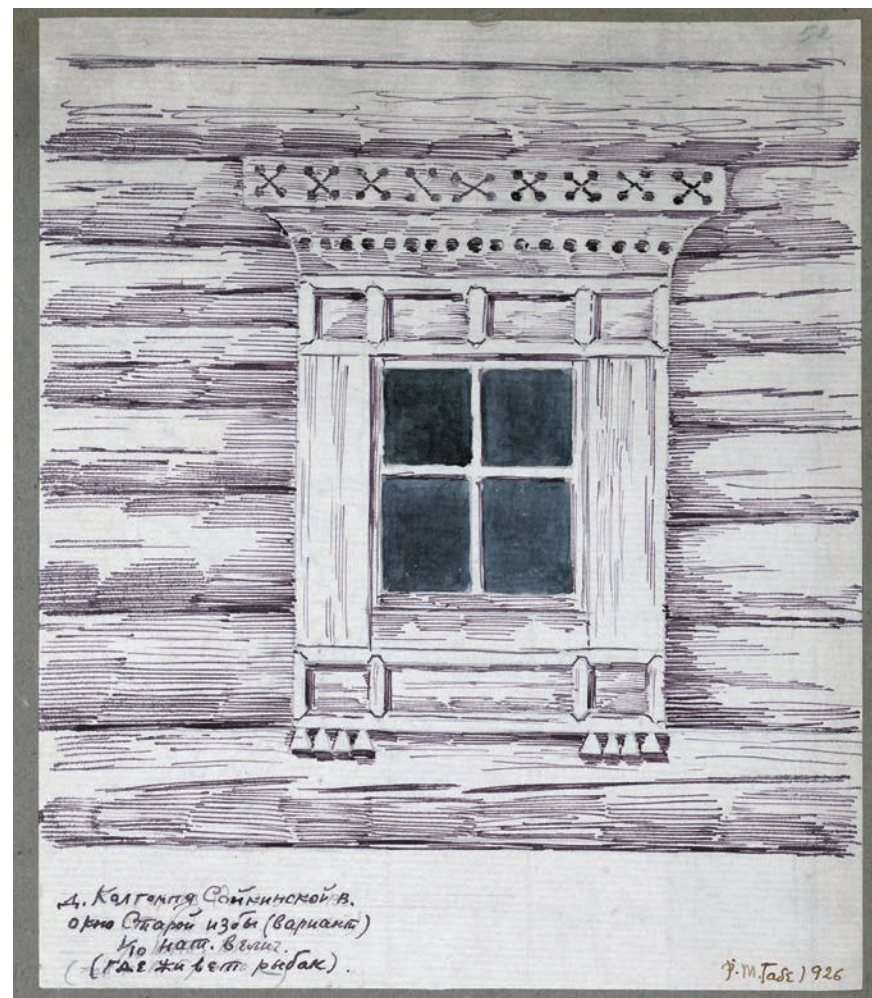 52
д. Колгомпя Сойкинской в.
окно Старой избы (вариант)
1/10 нат. велич.
(где живет рыбак).
Р.М.Габе 1926